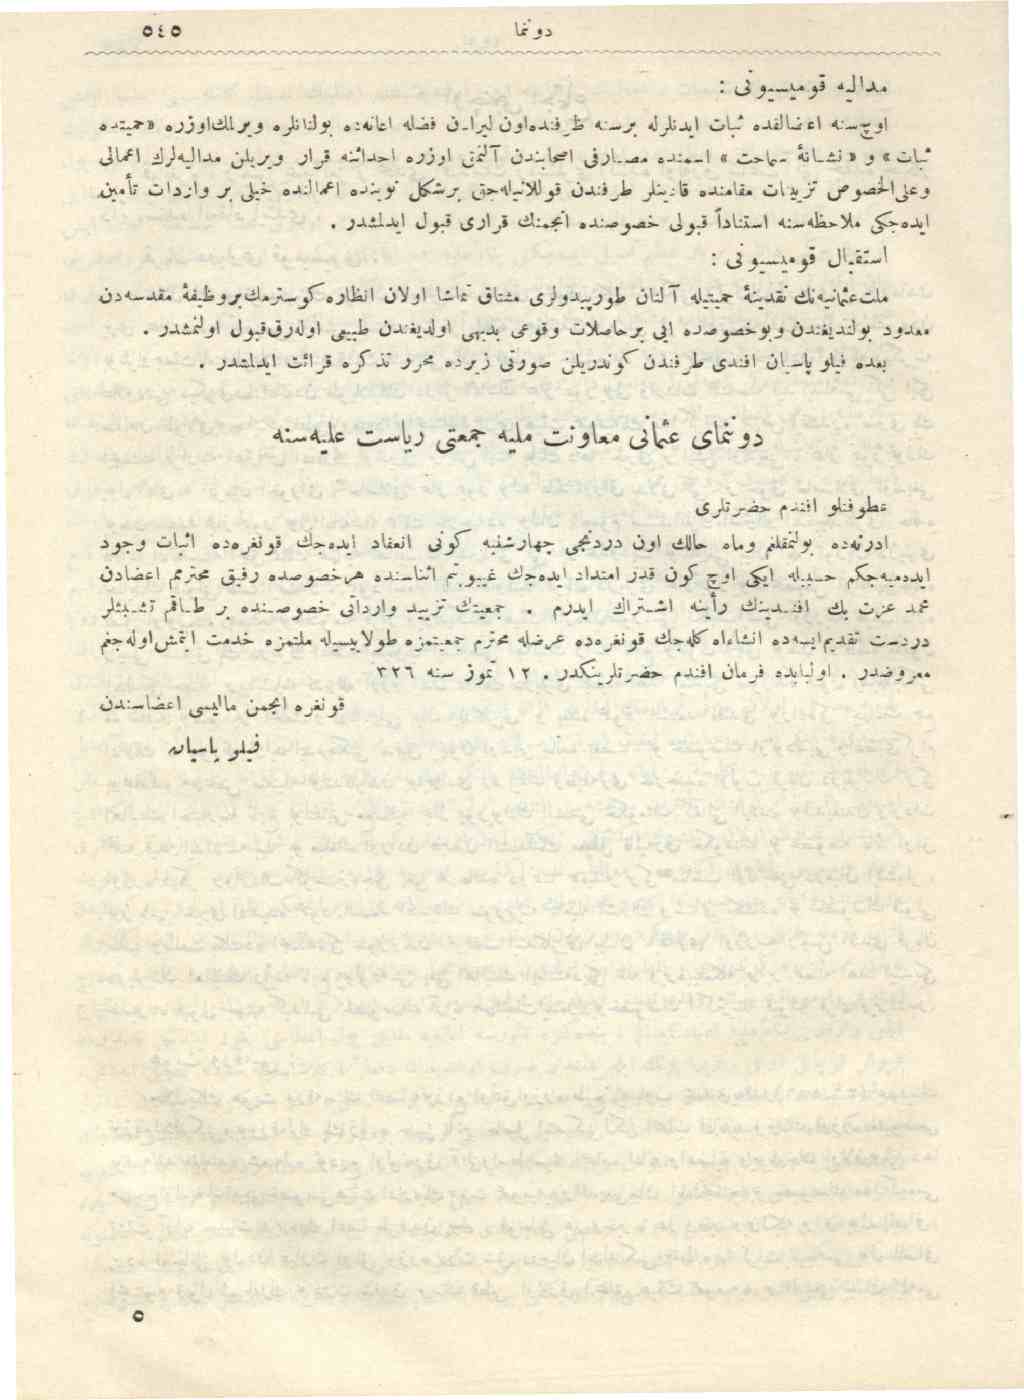 دوننما ٥٤٥
مداليه قوميسيونى :
اوچ سنه اعضالقده ثبات ايدنلرله برسنه ظرفنده اون ليرادن فضله اعانه ده بولنانلره ويرلمك اوزره « حميتده
ثبات » و « نشانهٔ سماحت » اسمنده مصارفى اصحابندن آلنمق اوزره احداثنه قرار ويريلن مداليه لرك اعمالى
وعلى الخصوص تزيينات مقامنده قادينلر طرفندن قوللانيله جق برشكل نوينده اعمالنده خيلى بر واردات تأمين
ايده جكى ملاحظه سنه استناداً قبولى خصوصنده انجمنك قرارى قبول ايدلمشدر .
استقبال قوميسيونى :
ملت عثمانيه نك نقدينهٔ حميتيله آلنان طورپيدولرى مشتاق تماشا اولان انظاره كوسترمك بروظيفهٔ مقدسه دن
معدود بولنديغندن وبوخصوصده ايى برحاصلات وقوعى بديهى اولديغندن طبيعى اوله رق قبول اولنمشدر .
بعده فيلو پاسيان افندى طرفندن كوندريلن صورتى زيرده محرر تذكره قرائت ايدلمشدر .
دوننماى عثمانى معاونت مليه جمعيتى رياست عليه سنه
عطوفتلو افندم حضرتلرى
ادرنه ده بولنمقلغم وماه حالك اون دردنجى چهارشنبه كونى انعقاد ايده جك قونغره ده اثبات وجود
ايده ميه جكم حسبيله ايكى اوچ كون قدر امتداد ايده جك غيبوبتم اثناسنده هرخصوصده رفيق محترمم اعضادن
محمد عزت بك افنديئك رأينه اشتراك ايدرم . جمعيتك تزييد وارداتى خصوصنده بر طاقم تشبثلر
دردست تقديم ايسه ده انشاءاه كله جك قونغره ده عرضله محترم جمعيتمزه طولاييسيله ملتمزه خدمت ايتمش اوله جغم
معروضدر . اولبابده فرمان افندم حضرتلرينكدر . ١٢ تموز سنه ٣٢٦
قونغره انجمن ماليسى اعضاسندن
فيلو پاسيان
٥